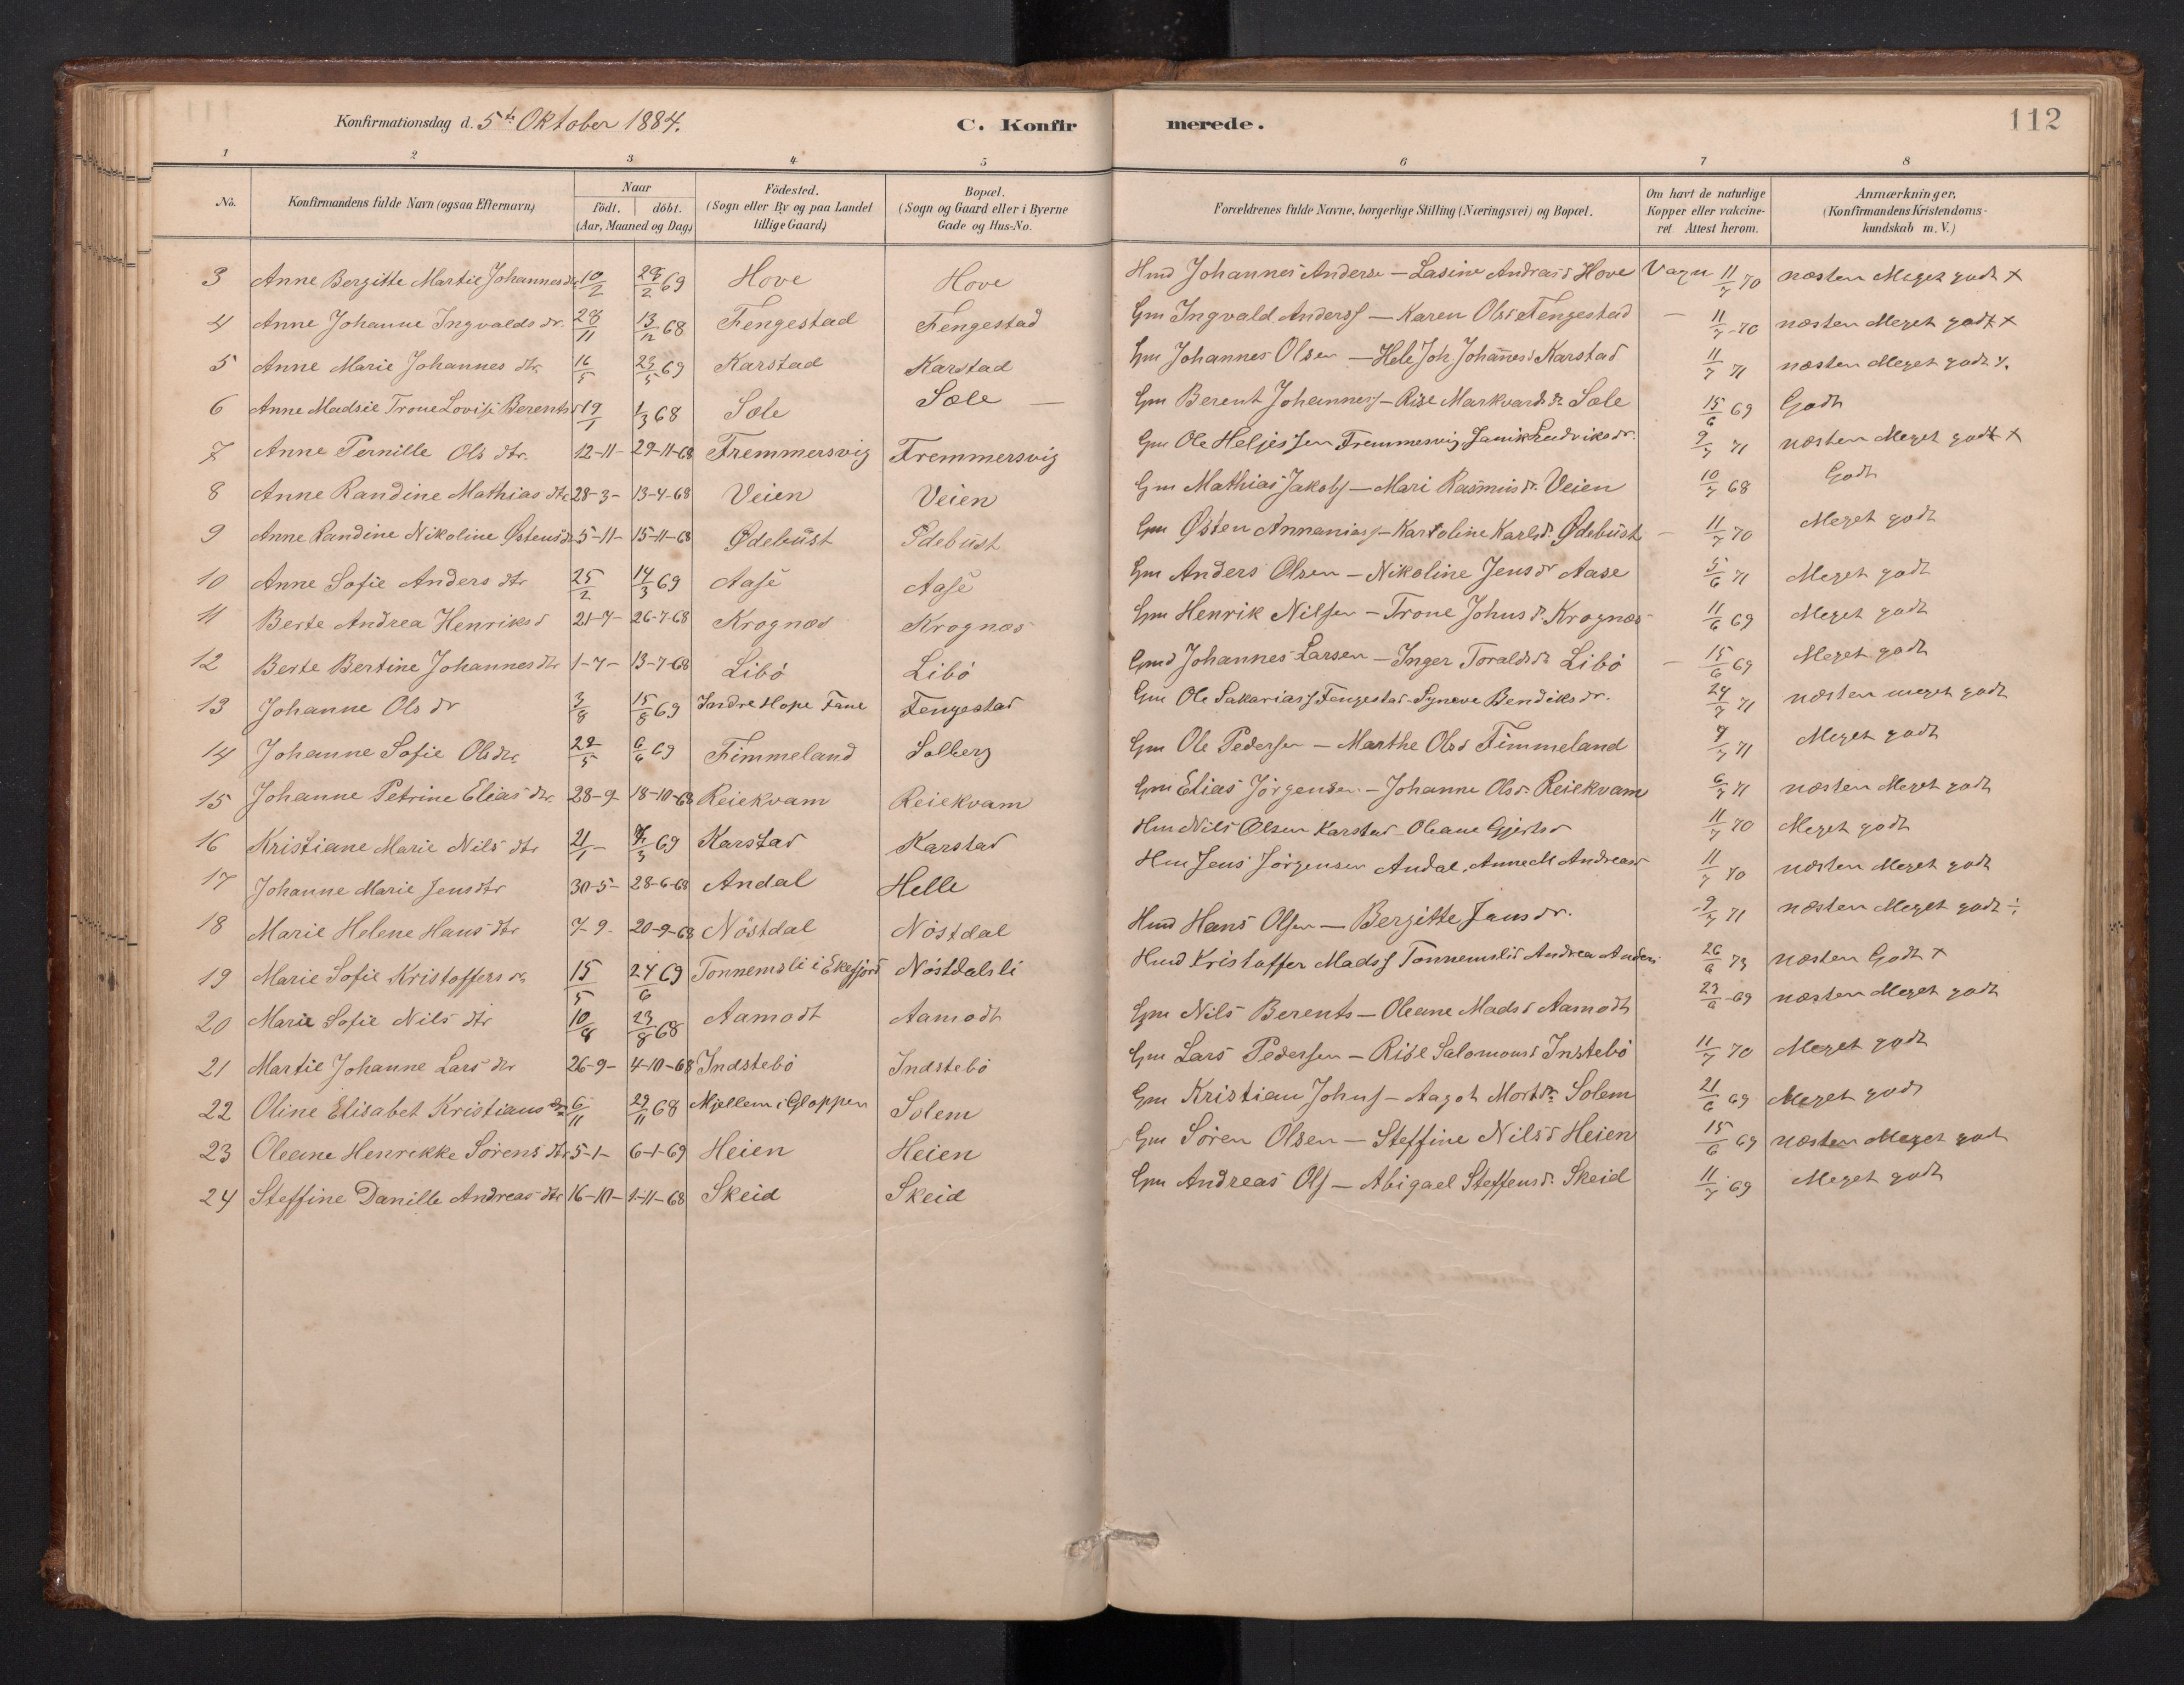 Konfirmationsdag d. 5te Oktober 1884. C. Konfir merede. 112
1 2 3 4 5 6 7 8
No. Konfirmandens fulde Navn (ogsaa Efternavn) Naar födt. döbt. (Aar, Maaned og Dag) Födested. (Sogn eller By og paa Landet tillige Gaard) Bopæl. (Sogn og Gaard eller i Byerne Gade og Hus-No. Forældrenes fulde Navne, borgerlige Stilling (Næringsvei) og Bopæl. Om havt de naturlige Kopper eller vakcineret Attest herom. Anmærkninger, (Konfirmandens Kristendomskundskab m. V.)
3 Anne Bergitte Martie Johannesdtr 10/2 28/2 69 Hove Hove Hmd Johannes Anderss - Lasine Andreasd Hove Vacu 11/7 70 næsten Meget godt +
4 Anne Johanne Ingvalds dr. 28/11 13/12 68 Fengestad Fengestad Gm Ingvald Anderss - Karen Olsd Fengestad - 11/7 70 næsten Meget godt +
5 Anne Marie Johannes dtr 16/5 23/5 69 Karstad Karstad Gm Johannes Olsen - Hele Joh Johannesd Karstad 11/7 71 næsten Meget godt
6 Anne Madsie Trone Lovise Berentsd 19/1 1/3 68 Sæle Sæle - Gm Berent Johanness - Rise Markvards dr Sæle 15/6 69 Godt
7 Anne Pernille Ols dtr. 12-11- 29-11-68 Fremmersvig Fremmersvig Gm Ole Heljessen Fremmersvig Janik Ludviksdr. 9/7 71 næsten Meget godt +
8 Anne Randine Mathias dtr 28-3- 13-4-68 Veien Veien Gm Mathias Jakobs - Mari Rasmusdr. Veien 10/7 68 Godt
9 Anne Randine Nikoline Østensdr 5-11- 15-11-68 Ødebust Ødebust Gm Østen Annanias - Karoline Karlsd. Ødebust - 11/7 70 Meget godt
10 Anne Sofie Anders dtr 25/2 14/3 69 Aase Aase Gm Anders Olsen - Nikoline Jensdr Aase 5/6 71 Meget godt
11 Berte Andrea Henriksd 21-7- 26-7-68 Krognæs Krognæs Gm Henrik Nilssen - Trone Johnsd. Krognæs 11/6 69 Meget godt
12 Berte Bertine Johannesdtr 1-7- 13-7-68 Libö Libö Gmd Johannes Larsen - Inger Toraldsdr Libö - 15/6 69 Meget godt
13 Johanne Ols dr 3/8 15/8 69 Indre Hope Fane Fengestad Gm Ole Sakariass Fengestad - Syneve Bendiksdr. 24/7 71 næsten meget godt
14 Johanne Sofie Olsdtr 22/5 6/6 69 Fimmeland Solberg Gm Ole Pedersen - Marthe Olsd Fimmeland 9/7 71 Meget godt
15 Johanne Petrine Elias dtr. 28-9- 18-10-68 Reiekvam Reiekvam Gm Elias Jörgensen - Johanne Olsd. Reiekvam 6/7 71 næsten Meget godt
16 Kristiane Marie Nils dtr 21/1 - 7/3 69 Karstad Karstad Hm Nils Olsen Karstad - Oleane Gjertsd 11/7 70 Meget godt
17 Johanne Marie Jensdtr 30-5- 28-6-68 Andal Helle Hm Jens Jörgensen Andal, Anne M Andreasd 11/7 70 næsten Meget godt
18 Marie Helene Hans dtr 7-9- 20-9-68 Nöstdal Nöstdal Hmd Hans Olsen - Bergitte Jansdr. 9/7 71 næsten Meget godt ÷
19 Marie Sofie Kristoffers dr 15/5 24/6 69 Tonnemsli i Ekefjord Nöstdalsli Hmd Kristoffer Madss Tonnemsli Andrea Anders 26/6 73 næsten Godt +
20 Marie Sofie Nils dtr 10/8 23/8 68 Aamodt Aamodt Gm Nils Berents - Oleane Madsd Aamodt 23/6 69 næsten Meget godt
21 Martie Johanne Lars dtr 26-9- 4-10-68 Indstebö Indstebö Gm Lars Pedersen - Rise Salomonsd Instebö 11/7 70 Meget godt
22 Oline Elisabet Kristians dtr 6/11 29/11 68 Mjellem i Gloppen Solem Gm Kristian Johns - Aagot Mortdr Solem 21/6 69 Meget godt
23 Oleane Henrikke Sörens dtr 5-1- 6-1-69 Heien Heien Gm Sören Olsen - Steffine Nilsd Heien 15/6 69 næsten Meget godt
24 Steffine Danille Andreas dtr 16-10- 1-11-68 Skeid Skeid Gm Andreas Ols - Abigael Steffensd. Skeid 11/7 69 Meget godt